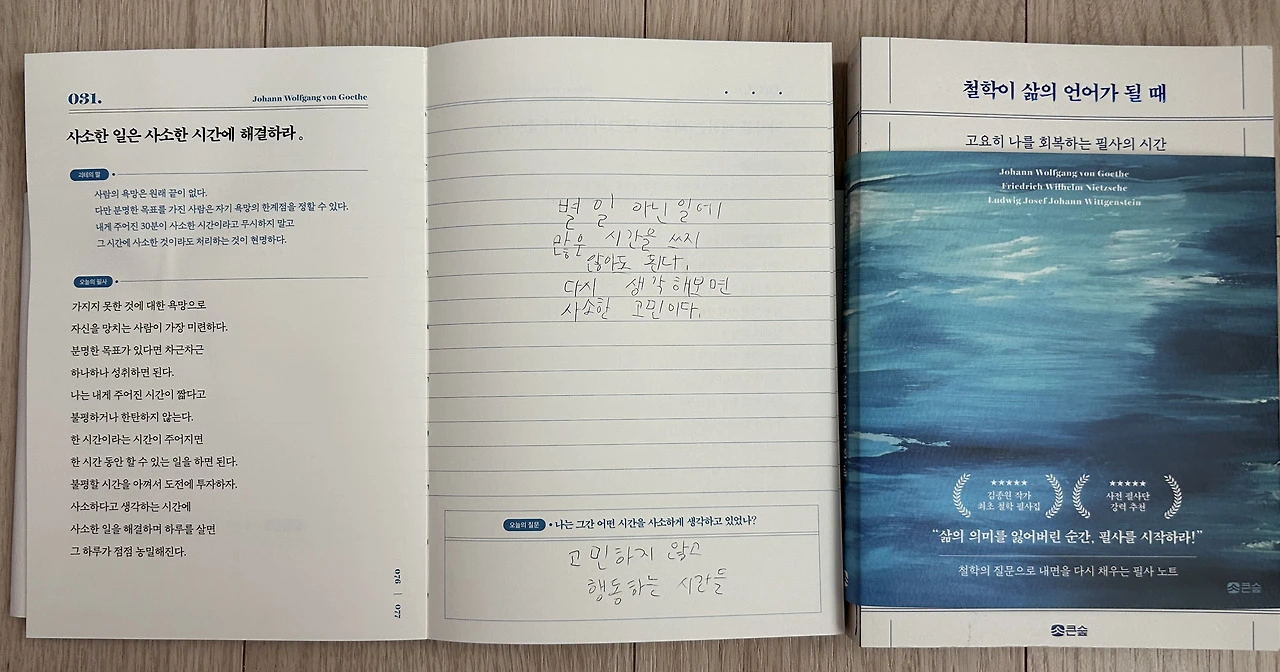 031.
Johann Wolfgang von Goethe
사소한 일은 사소한 시간에 해결하라。
괴테의 말
사람의 욕망은 원래 끝이 없다.
다만 분명한 목표를 가진 사람은 자기 욕망의 한계점을 정할 수 있다.
내게 주어진 30분이 사소한 시간이라고 무시하지 말고
그 시간에 사소한 것이라도 처리하는 것이 현명하다.
오늘의 필사
가지지 못한 것에 대한 욕망으로
자신을 망치는 사람이 가장 미련하다.
분명한 목표가 있다면 차근차근
하나하나 성취하면 된다.
나는 내게 주어진 시간이 짧다고
불평하거나 한탄하지 않는다.
한 시간이라는 시간이 주어지면
한 시간 동안 할 수 있는 일을 하면 된다.
불평할 시간을 아껴서 도전에 투자하자.
사소하다고 생각하는 시간에
사소한 일을 해결하며 하루를 살면
그 하루가 점점 농밀해진다.
076 | 077
별 일 아닌 일에
많은 시간을 쓰지
않아도 된다.
다시 생각해보면
사소한 고민이다.
오늘의 질문 • 나는 그간 어떤 시간을 사소하게 생각하고 있었나?
고민하지 않고
행동하는 시간들
철학이 삶의 언어가 될 때
고요히 나를 회복하는 필사의 시간
Johann Wolfgang von Goethe
Friedrich Wilhelm Nietzsche
Ludwig Josef Johann Wittgenstein
★★★★★
김종원 작가
최초 철학 필사집
★★★★★
사전 필사단
강력 추천
“삶의 의미를 잃어버린 순간, 필사를 시작하라!”
철학의 질문으로 내면을 다시 채우는 필사 노트
큰숲
큰숲